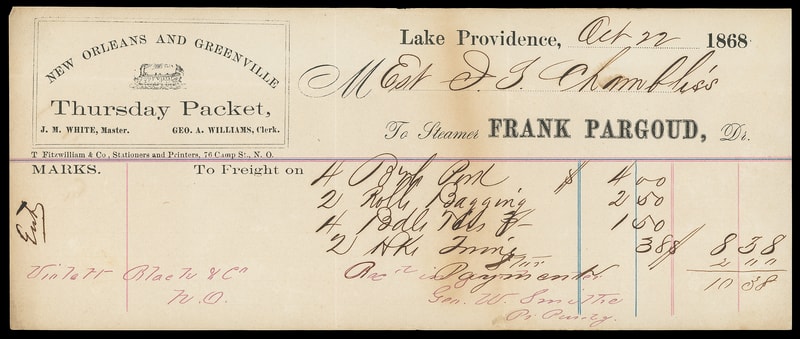 NEW ORLEANS AND GREENVILLE
Thursday Packet,
J. M. WHITE, Master. GEO. A. WILLIAMS, Clerk.
T Fitzwilliam & Co, Stationers and Printers, 76 Camp St., N. O.
Lake Providence, Oct 22 1868
M Est J. T. Chambliss
To Steamer FRANK PARGOUD, Dr.
MARKS. To Freight on
4 Bbls Pork $ 4 00
2 Rolls Bagging 2 50
4 Bdls Ties 1 50
2 38 8 38
2 " "
10 38
Payment
Black & Co
N.O.
Geo. W. Smith